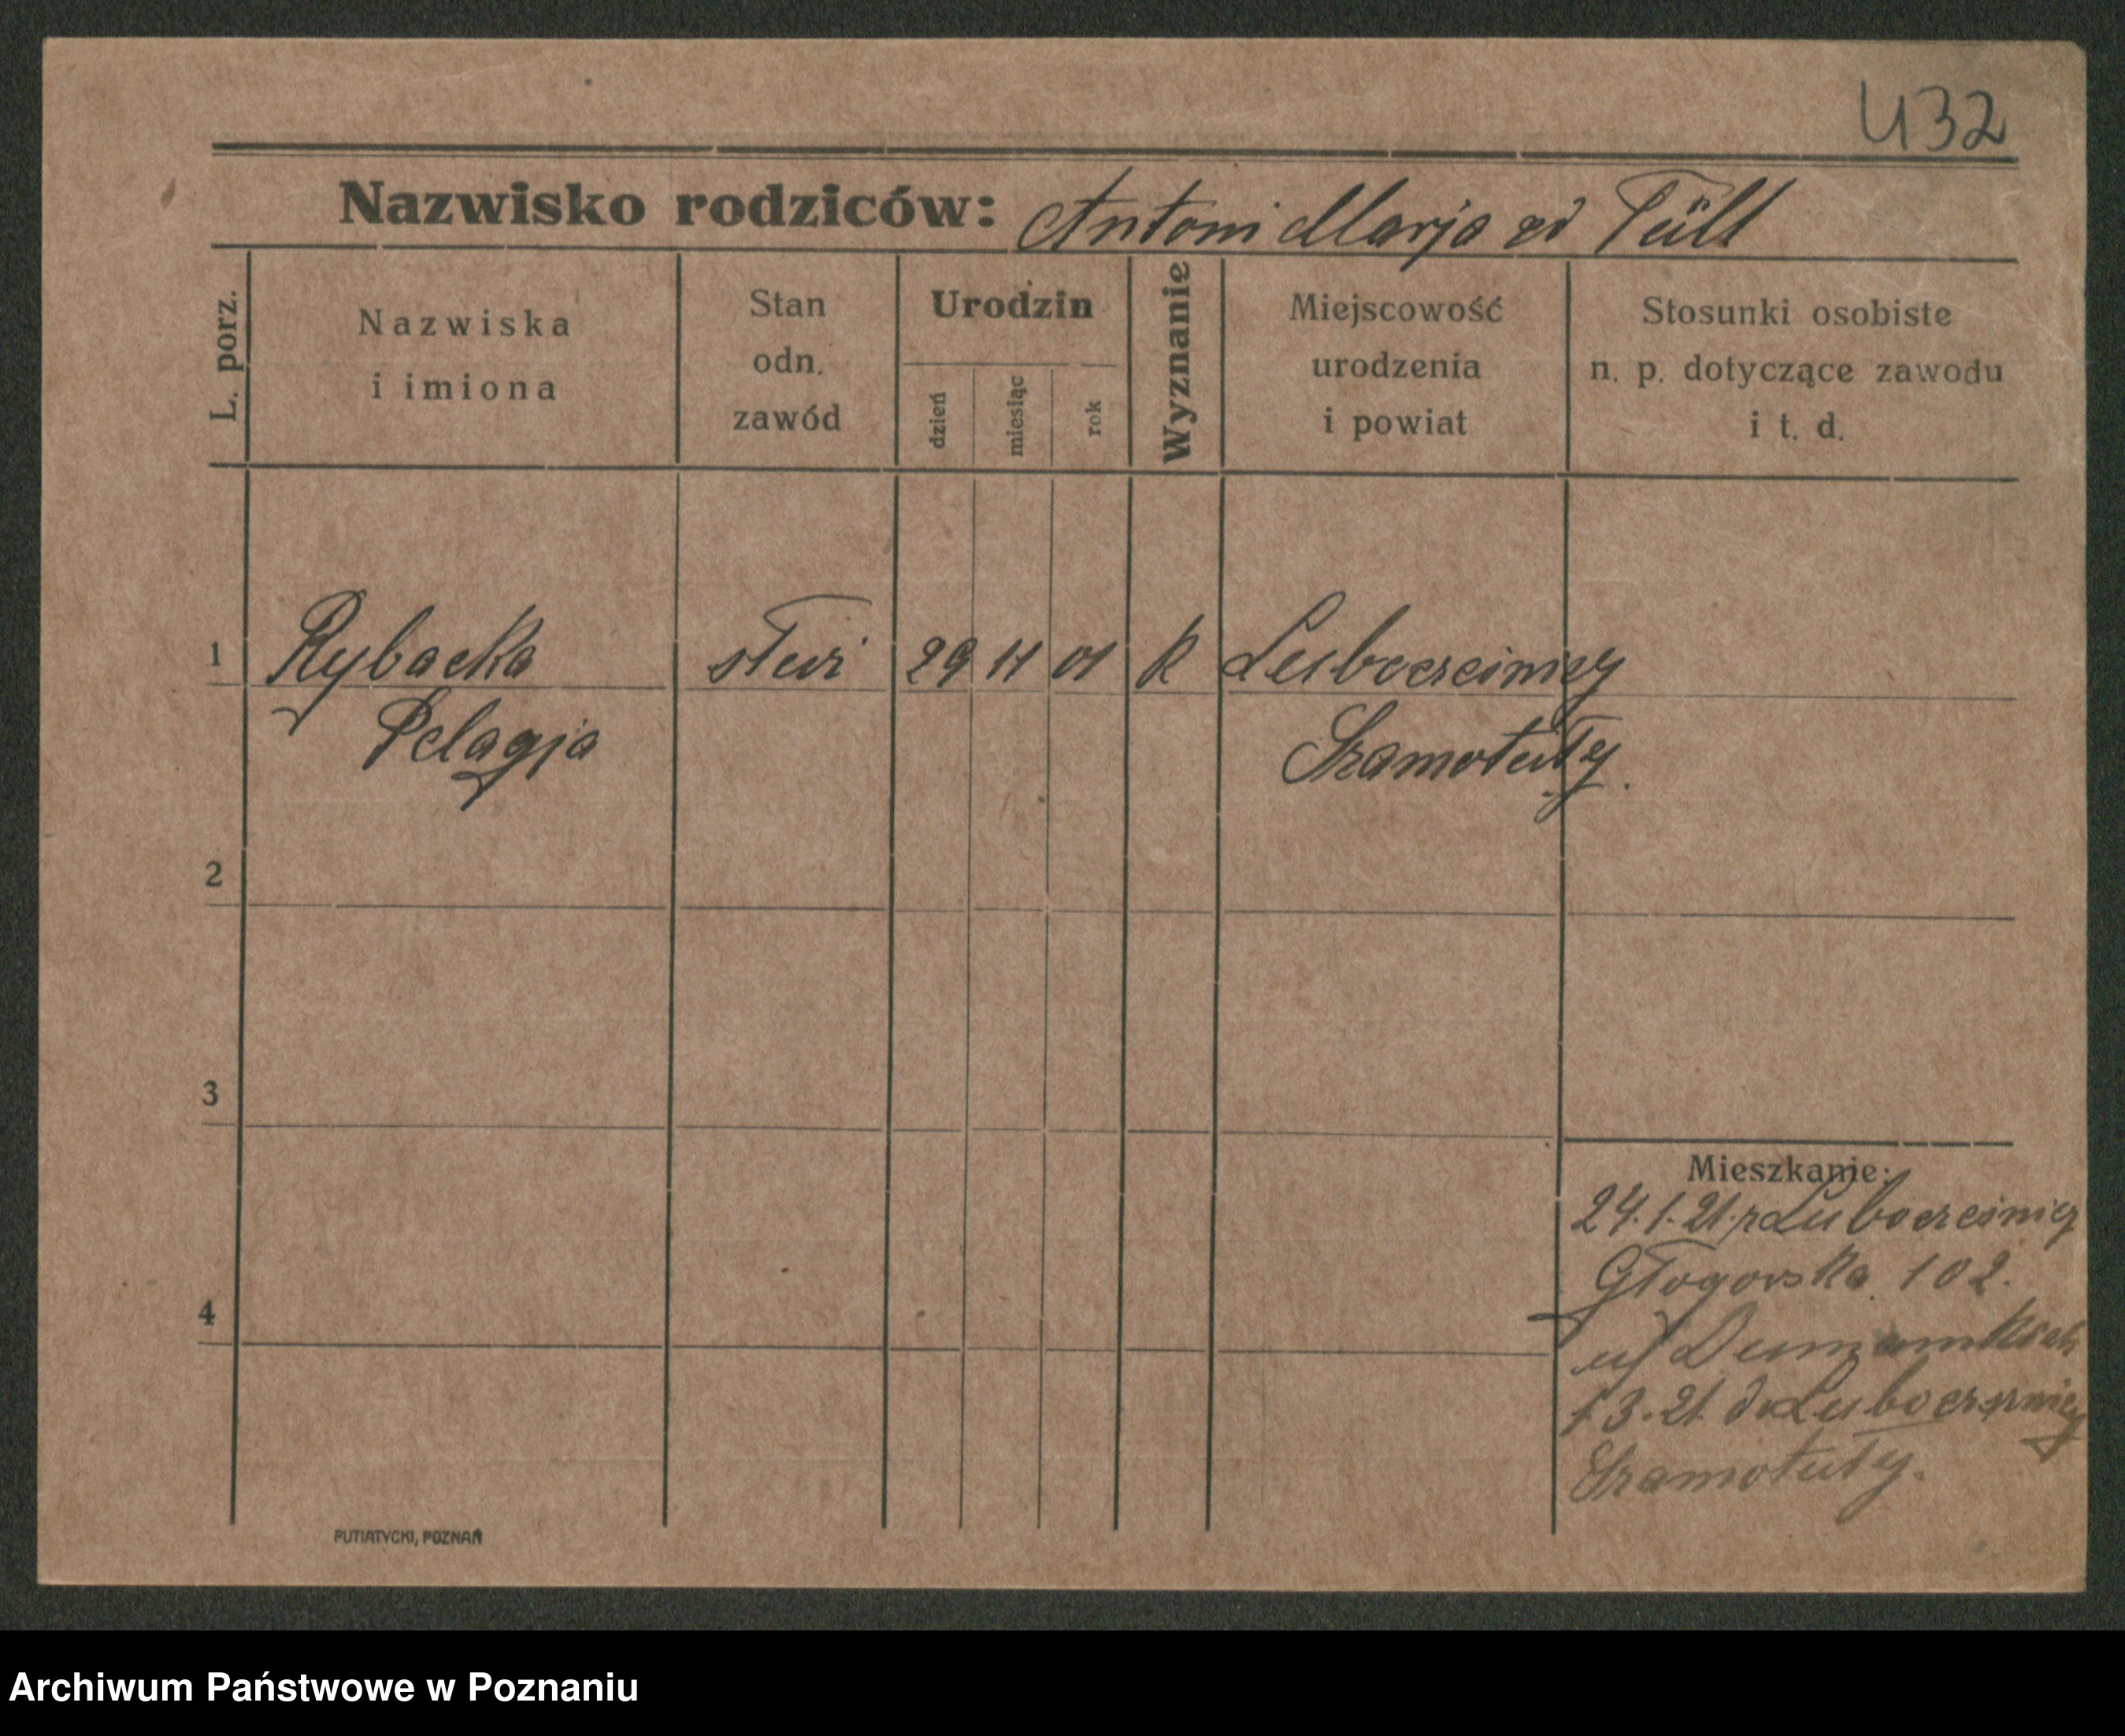 432
Nazwisko rodziców: Antoni Marja zd Tüll
L. porz.
Nazwiska
i imiona
Stan
odn.
zawód
Urodzin
dzień
miesiąc
rok
Wyznanie
Miejscowość
urodzenia
i powiat
Stosunki osobiste
n. p. dotyczące zawodu
i t. d.
1 Rybacka 29 11 01 K Lubocześnicy
Pelagja Szamotuły.
2
3
Mieszkanie:
24.1.21. z Lubocześnicy
4
Głogowska 102.
u/
1.3.21 do Lubocześnicy
Szamotuły.
PUTIATYCKI, POZNAŃ
Archiwum Państwowe w Poznaniu